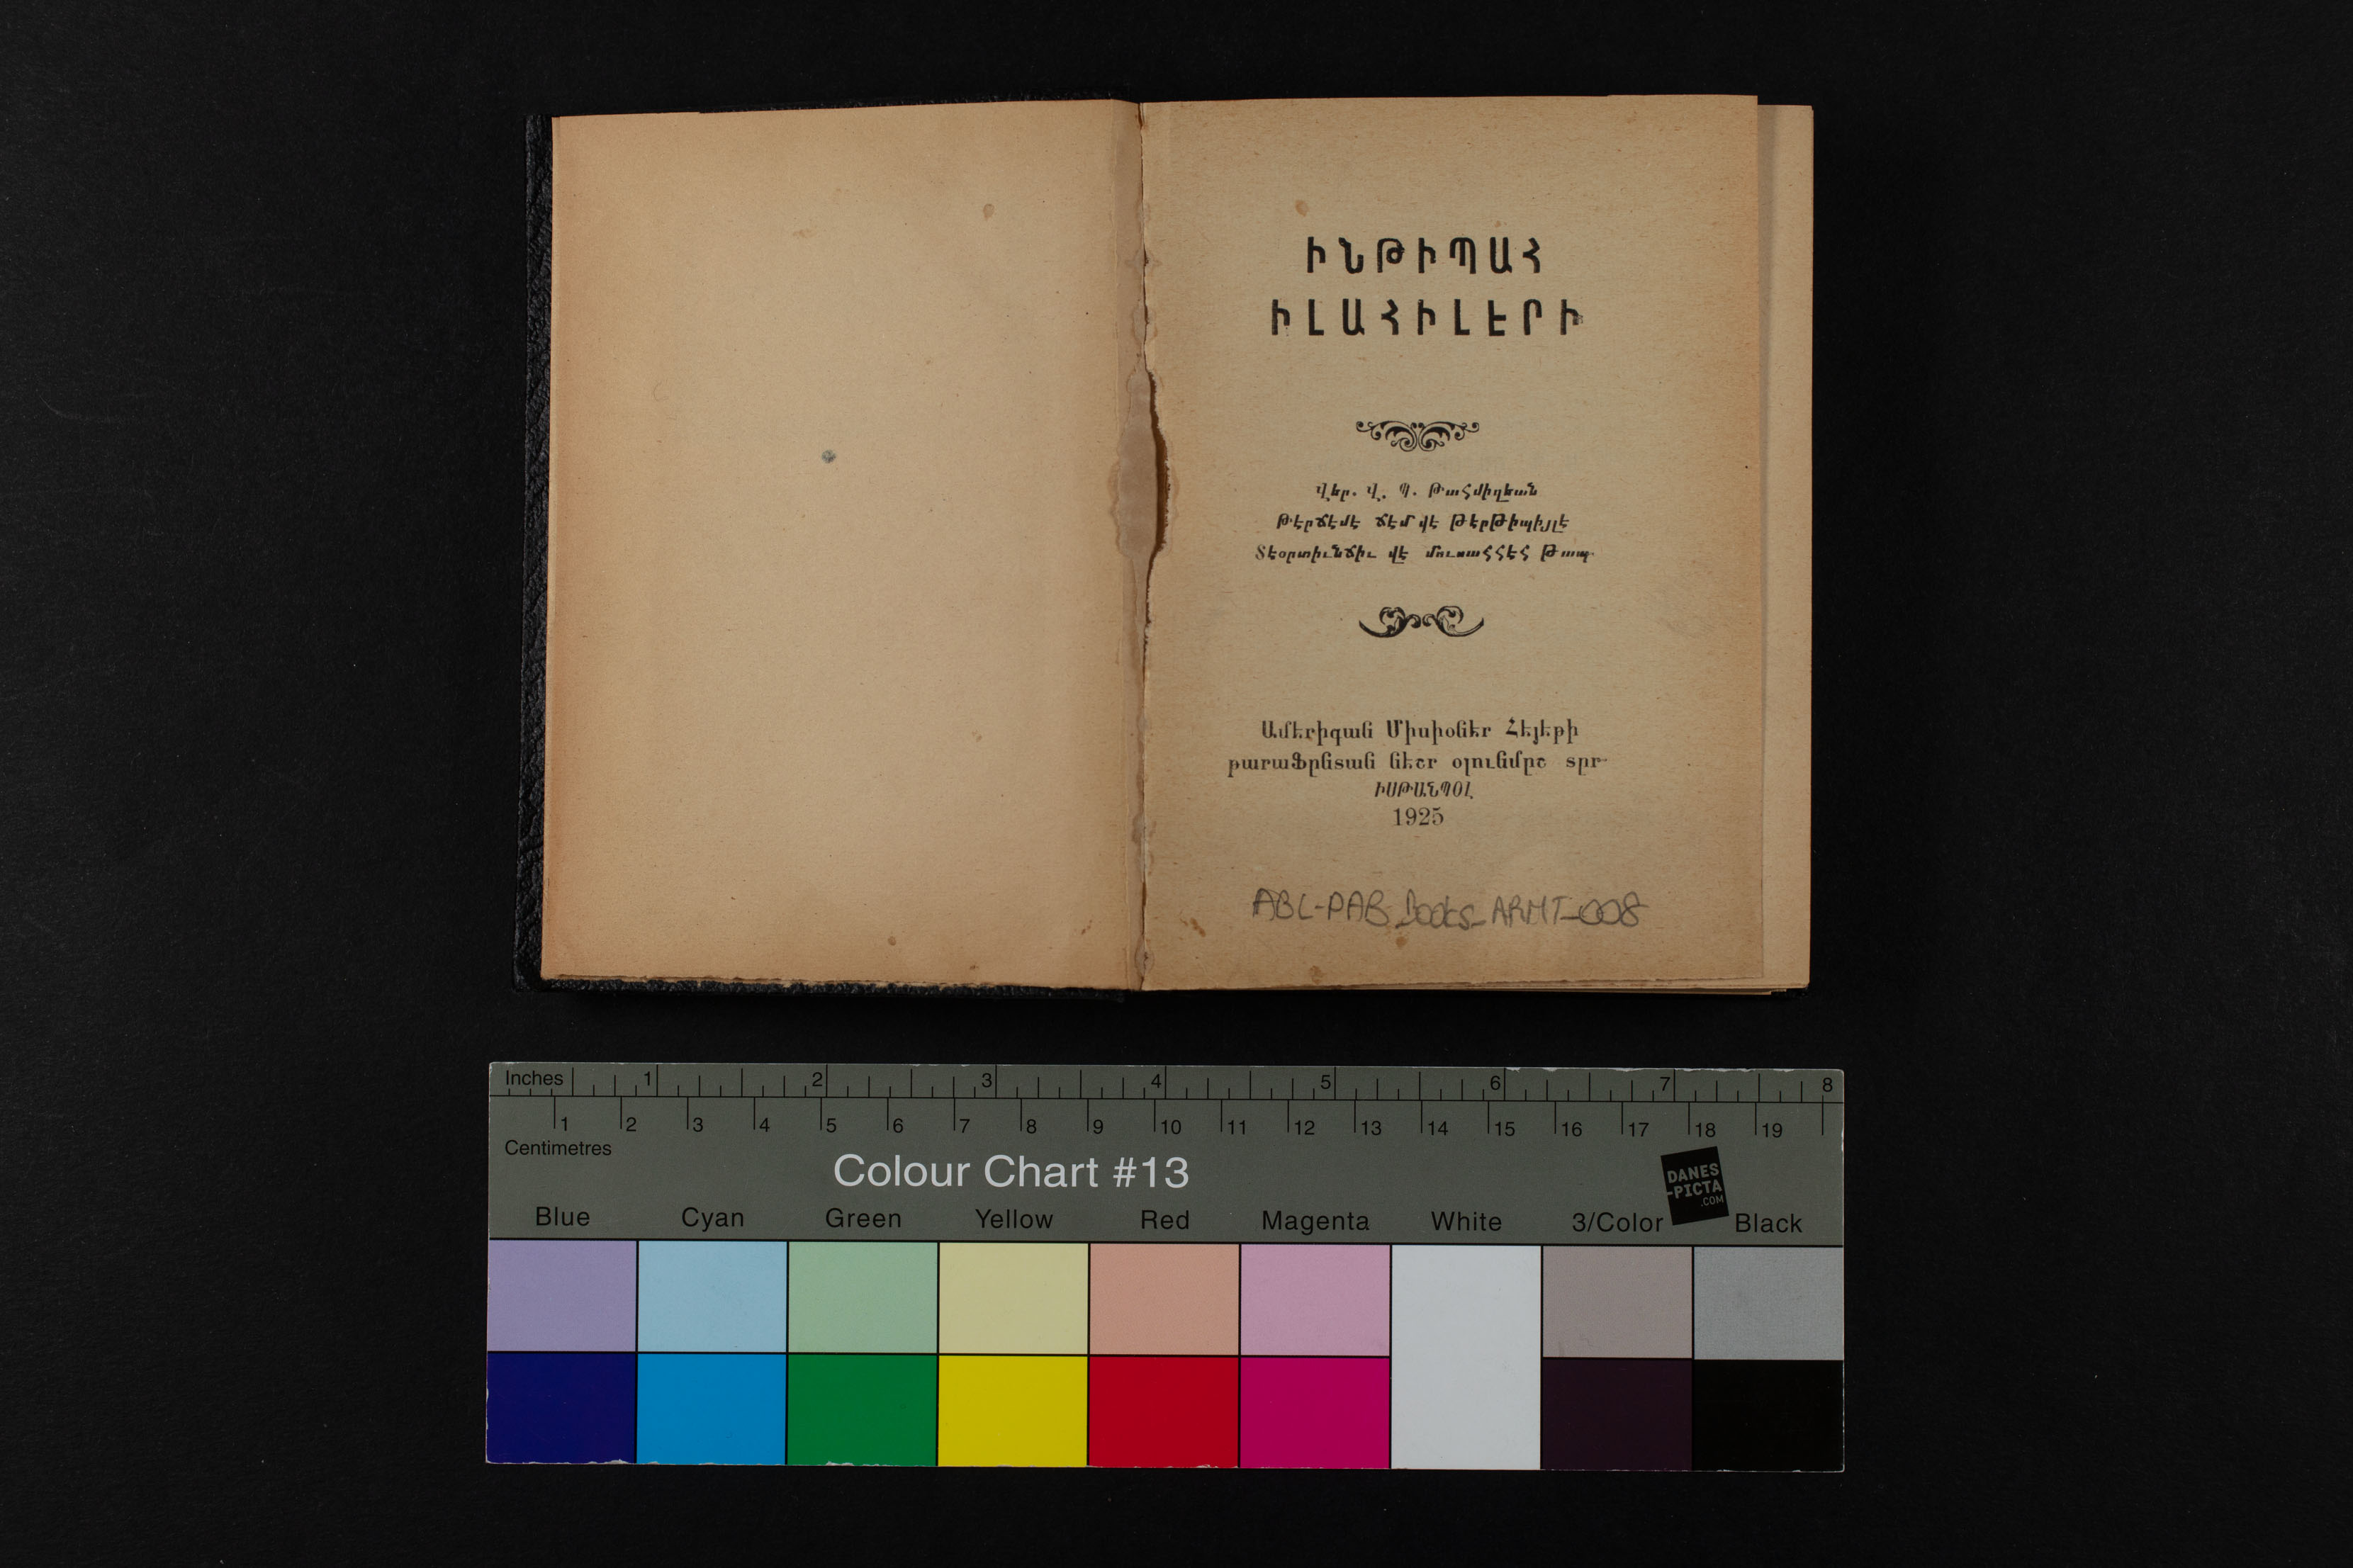 ԻՆԹԻՊԱՀ
ԻԼԱՀԻԼԷՐԻ
Վեր. Վ. Պ. Թահմիզեան
Թէրճէմէ ճէմ վէ թէրթիպիյլէ
Տէօրտիւնճիւ վէ մուսահհէհ թապ
Ամէրիգան Միսիօնէր Հէյէթի
թարաֆընտան նէշր օլունմըշ տըր
ԻՍԹԱՆՊՕԼ
1925
ABL-PAB-Books-ARMT-008
Inches 1 2 3 4 5 6 7 8
1 2 3 4 5 6 7 8 9 10 11 12 13 14 15 16 17 18 19
Centimetres
Colour Chart #13
DANES
-PICTA
.COM
Blue Cyan Green Yellow Red Magenta White 3/Color Black